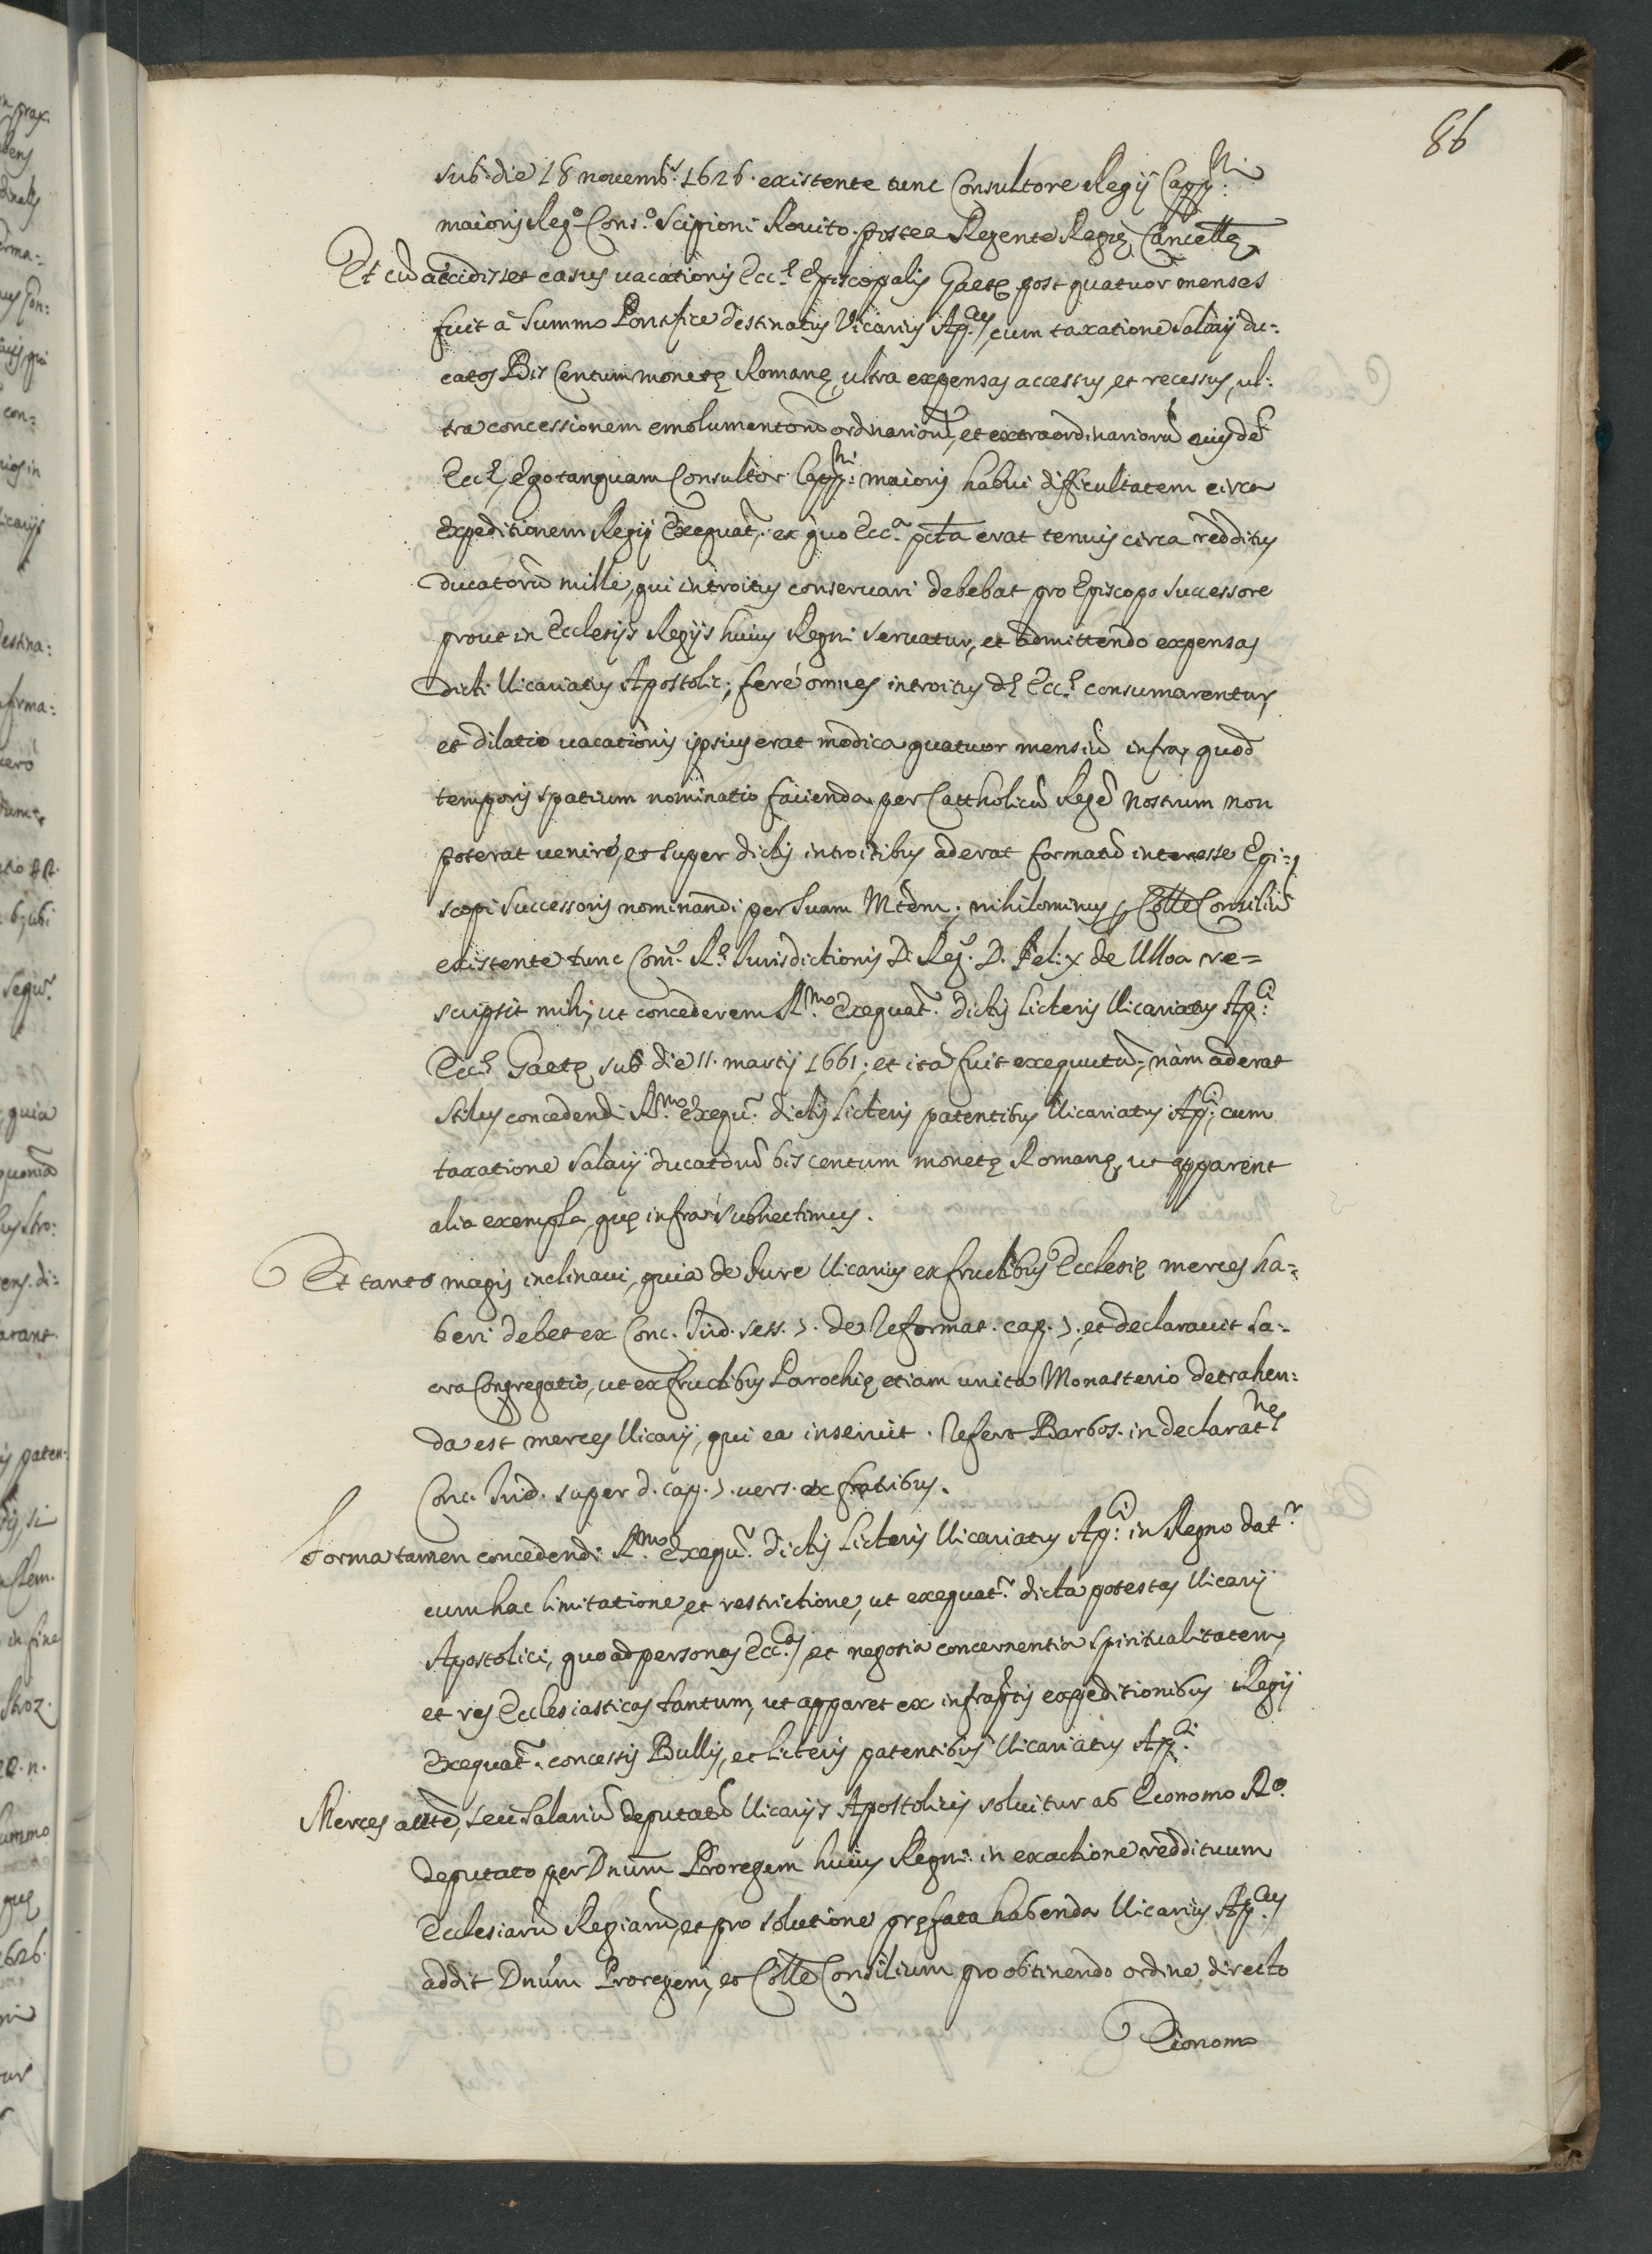 86
sub die 18 novemb.s 1626. existente tunc Consultore Regij Capp.ni
maioris Reg.o Cons.o Scipioni Rovito postea Regente Regię Cancellę
Et cū accidisset casus vacationis Eccl.ę Episcopalis Gaetę post quatuor menses
fuit à Summo Pontifice destinatus Vicarius Ap.cus, cum taxatione salarij du:
catos Bis Centum monetę Romanę, ultra expensas accessus, et recessus, ul:
tra concessionem emolumentorū ordinariorū, et extraordinariorū eiusdē
Eccl.ę, Ego tanquam Consultor Capp.ni maioris habui difficultatem circa
expeditionem Regij Exequat.r ex quo Ecc.a p̄cta erat tenuis circa redditus
ducatorū mille, qui introitus conservari debebat pro Episcopo successore
prout in Ecclesijs Regijs huius Regni servatur, et admittendo expensas
dicti Vicariatus Apostolic:, ferè omnes introitus d.ę Eccl.ę consumarentur,
et dilatio vacationis ipsius erat modica quatuor mensiū infra, quod
temporis spatium nominatio facienda per Cattholicū Regē Nostrum non
poterat venire, et super dictis introitibus aderat formatū interesse Epi:
scopi successoris nominandi per suam Mtem̄; nihilominus Colle Consiliū
existente tunc Com.o R.ę Jurisdictionis D. Reg. D. Felix de Ulloa re=
scripsit mihi, ut concederem R.mo Exequat.r dictis licteris Vicariatus Ap.ci
Eccl.ę Gaetę sub die 11. martij 1661. et ita fuit exequutū, nàm aderat
stilus concedendi R.mo Exequ.r dictis licteris patentibus Vicariatus Ap.ci, cum
taxatione salarij ducatorū bis centum monetę Romanę, ut apparent
alia exempla, quę infra subnectimus.
Et tanto magis inclinavi, quia de Jure Vicarius ex fructibus Ecclesię merces ha:
beri debet ex Conc. Trid. sess. 7. de reformat. cap. 7. et declaravit Sa:
cra Congregatio, ut ex fructibus Parochię etiam unita Monasterio detrahen:
da est merces Vicarij, qui ea inservit. refert Barbos. in declarat.ne
Conc. Trid. super d. cap. 7. vers. ex fructibus.
Forma tamen concedendi R.mo Exequ.r dictis licteris Vicariatus Ap.ci in Regno dat.r
cum hac limitatione, et restrictione, ut exequat.r dicta potestas Vicarij
Apostolici, quo ad personas Ecc.cas, et negotia concernentia spiritualitatem,
et res Ecclesiasticas tantum, ut apparet ex infraptis expeditionibus Regij
Exequat.r concessis Bullis, et licteris patentibus Vicariatus Ap.ci
Merces autē, seu salariū deputatū Vicarijs Apostolicis solvitur ab Economo R.o
deputato per Dnum̄ Proregem huius Regni in exactione reddituum
Ecclesiarū Regiarū, et pro solutione pręfata habenda Vicarius Ap.cus
addit Dnum̄ Proregem, et Colle Consilium pro obtinendo ordine directo
Econom: